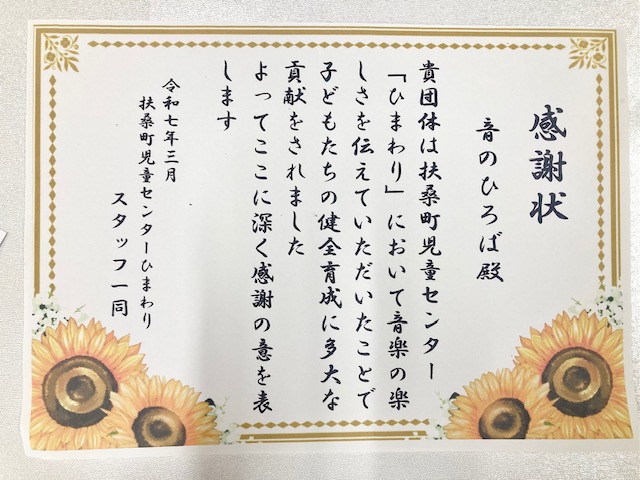 感謝状
音のひろば殿
貴団体は扶桑町児童センター
「ひまわり」において音楽の楽
しさを伝えていただいたことで
子どもたちの健全育成に多大な
貢献をされました
よってここに深く感謝の意を表
します
令和七年三月
扶桑町児童センターひまわり
スタッフ一同